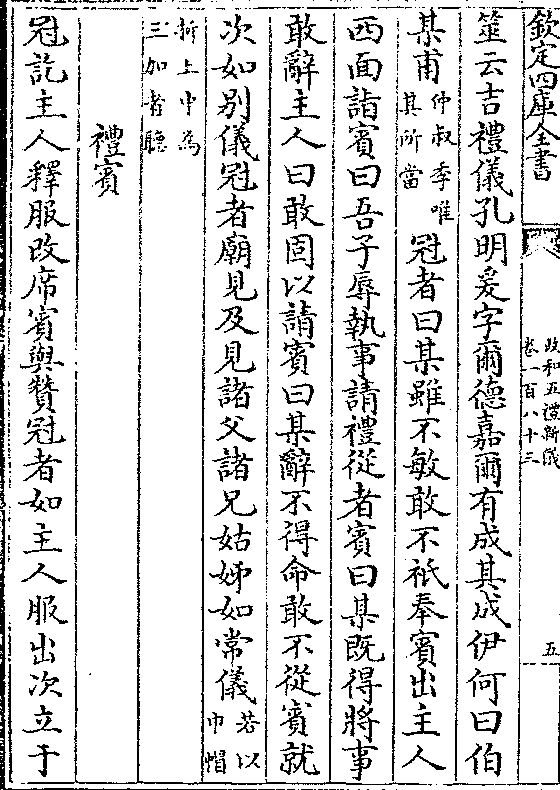 欽定四庫全書
政和五禮新儀
卷一百八十三
五
筮云吉禮儀孔明爰字爾德嘉爾有成其成伊何曰伯
某甫仲叔季唯其所當冠者曰某雖不敏敢不祗奉賓出主人
西面詣賓曰吾子辱執事請禮從者賓曰某既得將事
敢辭主人曰敢固以請賓曰某辭不得命敢不從賓就
次如別儀冠者廟見及見諸父諸兄姑姊如常儀若以巾帽
折上巾為三加者聽
禮賓
冠訖主人釋服改席賓與贊冠者如主人服出次立于